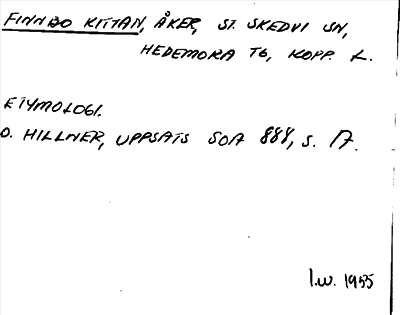 FINNBO KITTAN, ÅKER, ST. SKEDVI SN,
HEDEMORA TG, KOPP. L.
ETYMOLOGI.
O. HILLNER, UPPSATS SOA 888, S. 17.
I.W. 1955